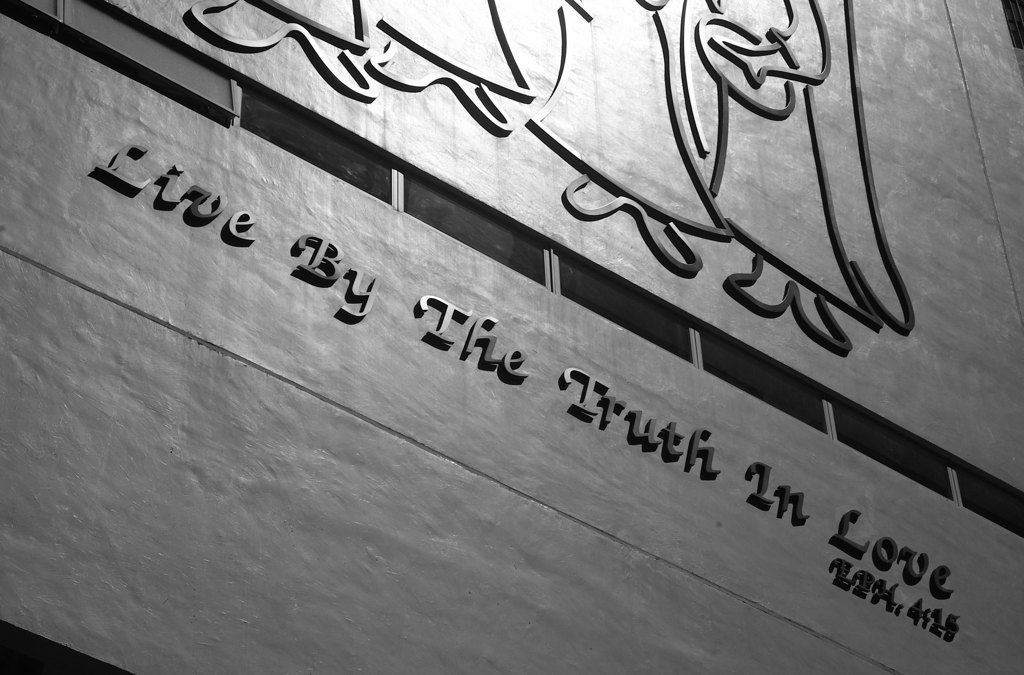 Live By The Truth In Love
EPH. 4:15